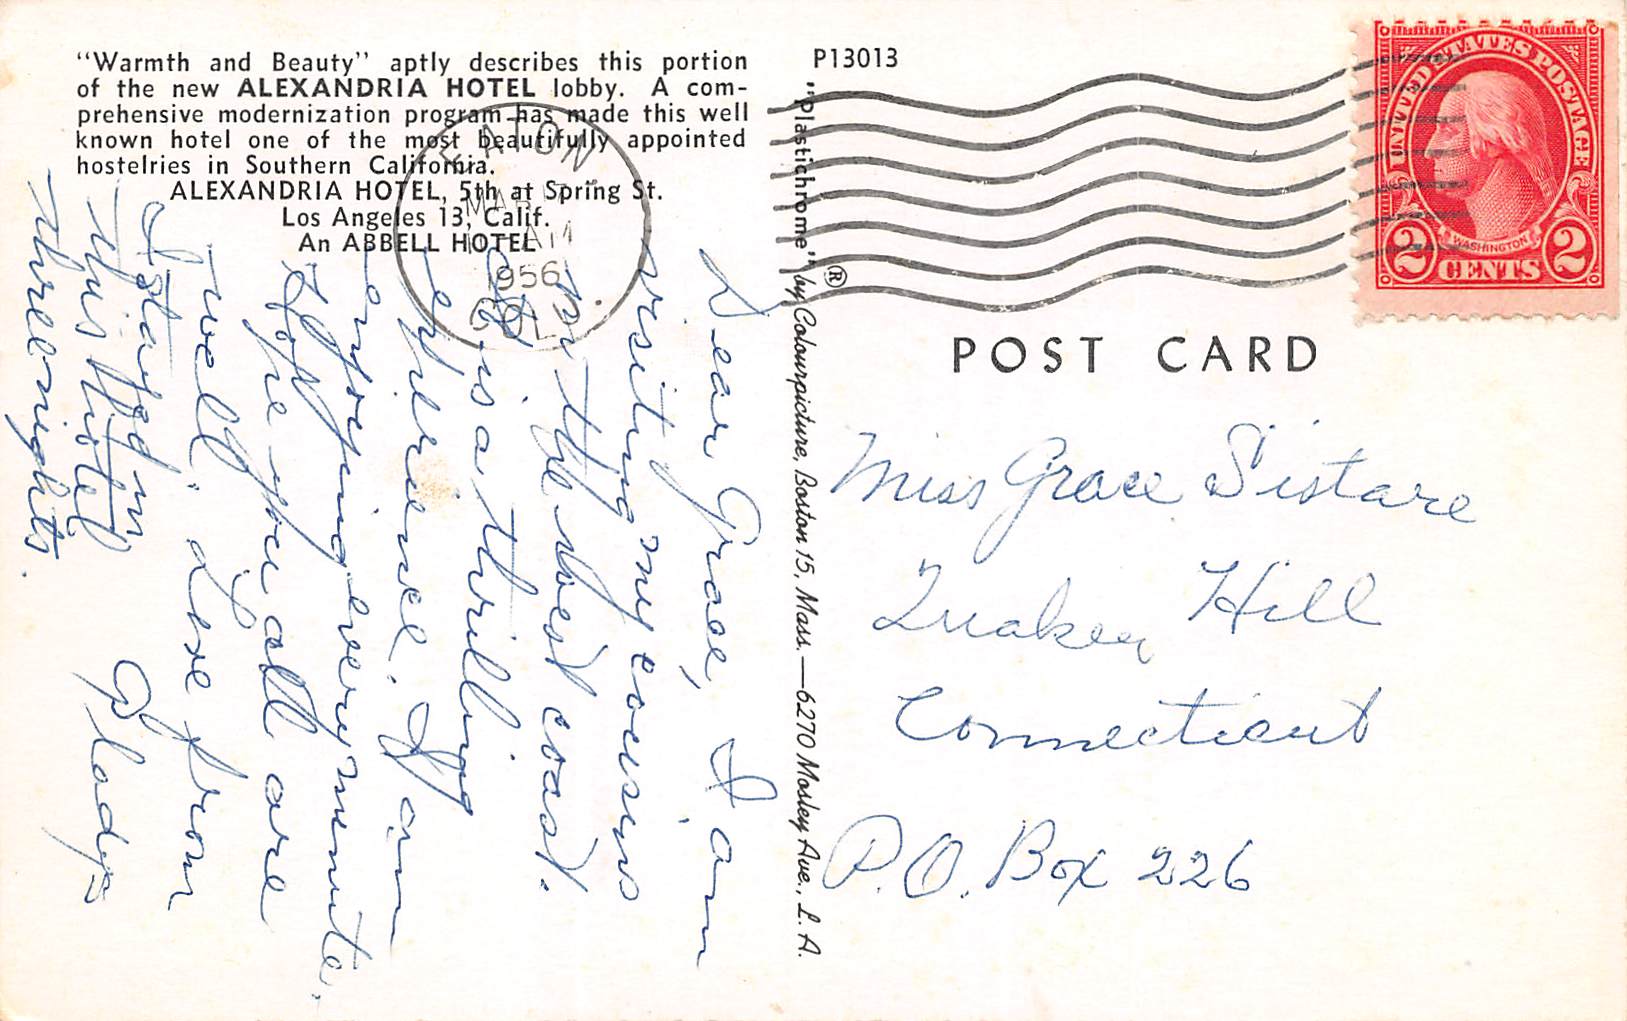 "Warmth and Beauty" aptly describes this portion
of the new ALEXANDRIA HOTEL lobby. A com-
prehensive modernization program has made this well
known hotel one of the most beautifully appointed
hostelries in Southern California.
ALEXANDRIA HOTEL, 5th at Spring St.
Los Angeles 13, Calif.
An ABBELL HOTEL
EATON
MAR
AM
1956
COLO.
Dear Grace, I am
visiting my cousins
on the West coast.
It is a thrilling
experience. I am
enjoying every minute.
Hope you all are
well. Love from
Gladys
I stayed in
this Hotel
three nights.
P13013
"Plastichrome" ® by Colourpicture, Boston 15, Mass. — 6270 Mosley Ave., L. A.
UNITED STATES POSTAGE
WASHINGTON
2 CENTS 2
POST CARD
Miss Grace Sistare
Quaker Hill
Connecticut
P.O. Box 226